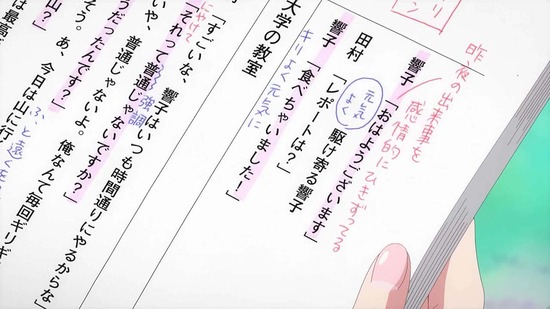 リ
ン
昨夜の出来事を
感情的にひきずってる
響子「おはようございます」
元気
よく
駆け寄る響子
田村「レポートは?」
響子「食べちゃいました!」
キリよく元気に
大学の教室
「すごいな、響子はいつも時間通りにやるからな」
にやけて
「それって普通じゃないですか?」
強調
いや、普通じゃないよ。俺なんて毎回ギリギ
うだったんです?」
そう。あ、今日は山に行
ふと遠くを
山?」
は最高